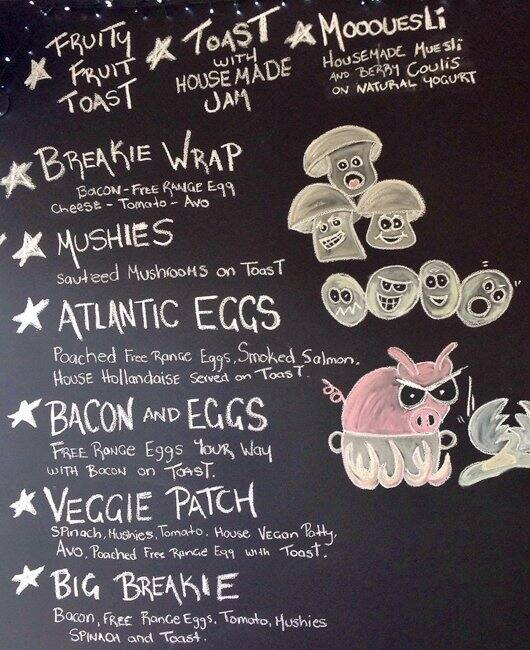 FRUITY
FRUIT
TOAST
TOAST
WITH
HOUSEMADE
JAM
MOOOUESLi
HOUSEMADE MUESLi
AND BERRY COULIS
ON NATURAL YOGURT
BREAKIE WRAP
BACON - FREE RANGE EGG
CHEESE - TOMATO - AVO
MUSHIES
Sauteed MushrooMS on ToasT
ATLANTIC EGGS
Poached Free Range Eggs, Smoked Salmon.
House Hollandaise Served on Toast.
BACON AND EGGS
FREE Range Eggs Your Way
WITH BACON on TOAST.
VEGGIE PATCH
Spinach, Mushies, Tomato. House Vegan Patty,
Avo, Poached Free Range Egg with Toast.
BIG BREAKIE
Bacon, FREE Range Eggs, Tomato, Mushies
SPINACH and Toast.